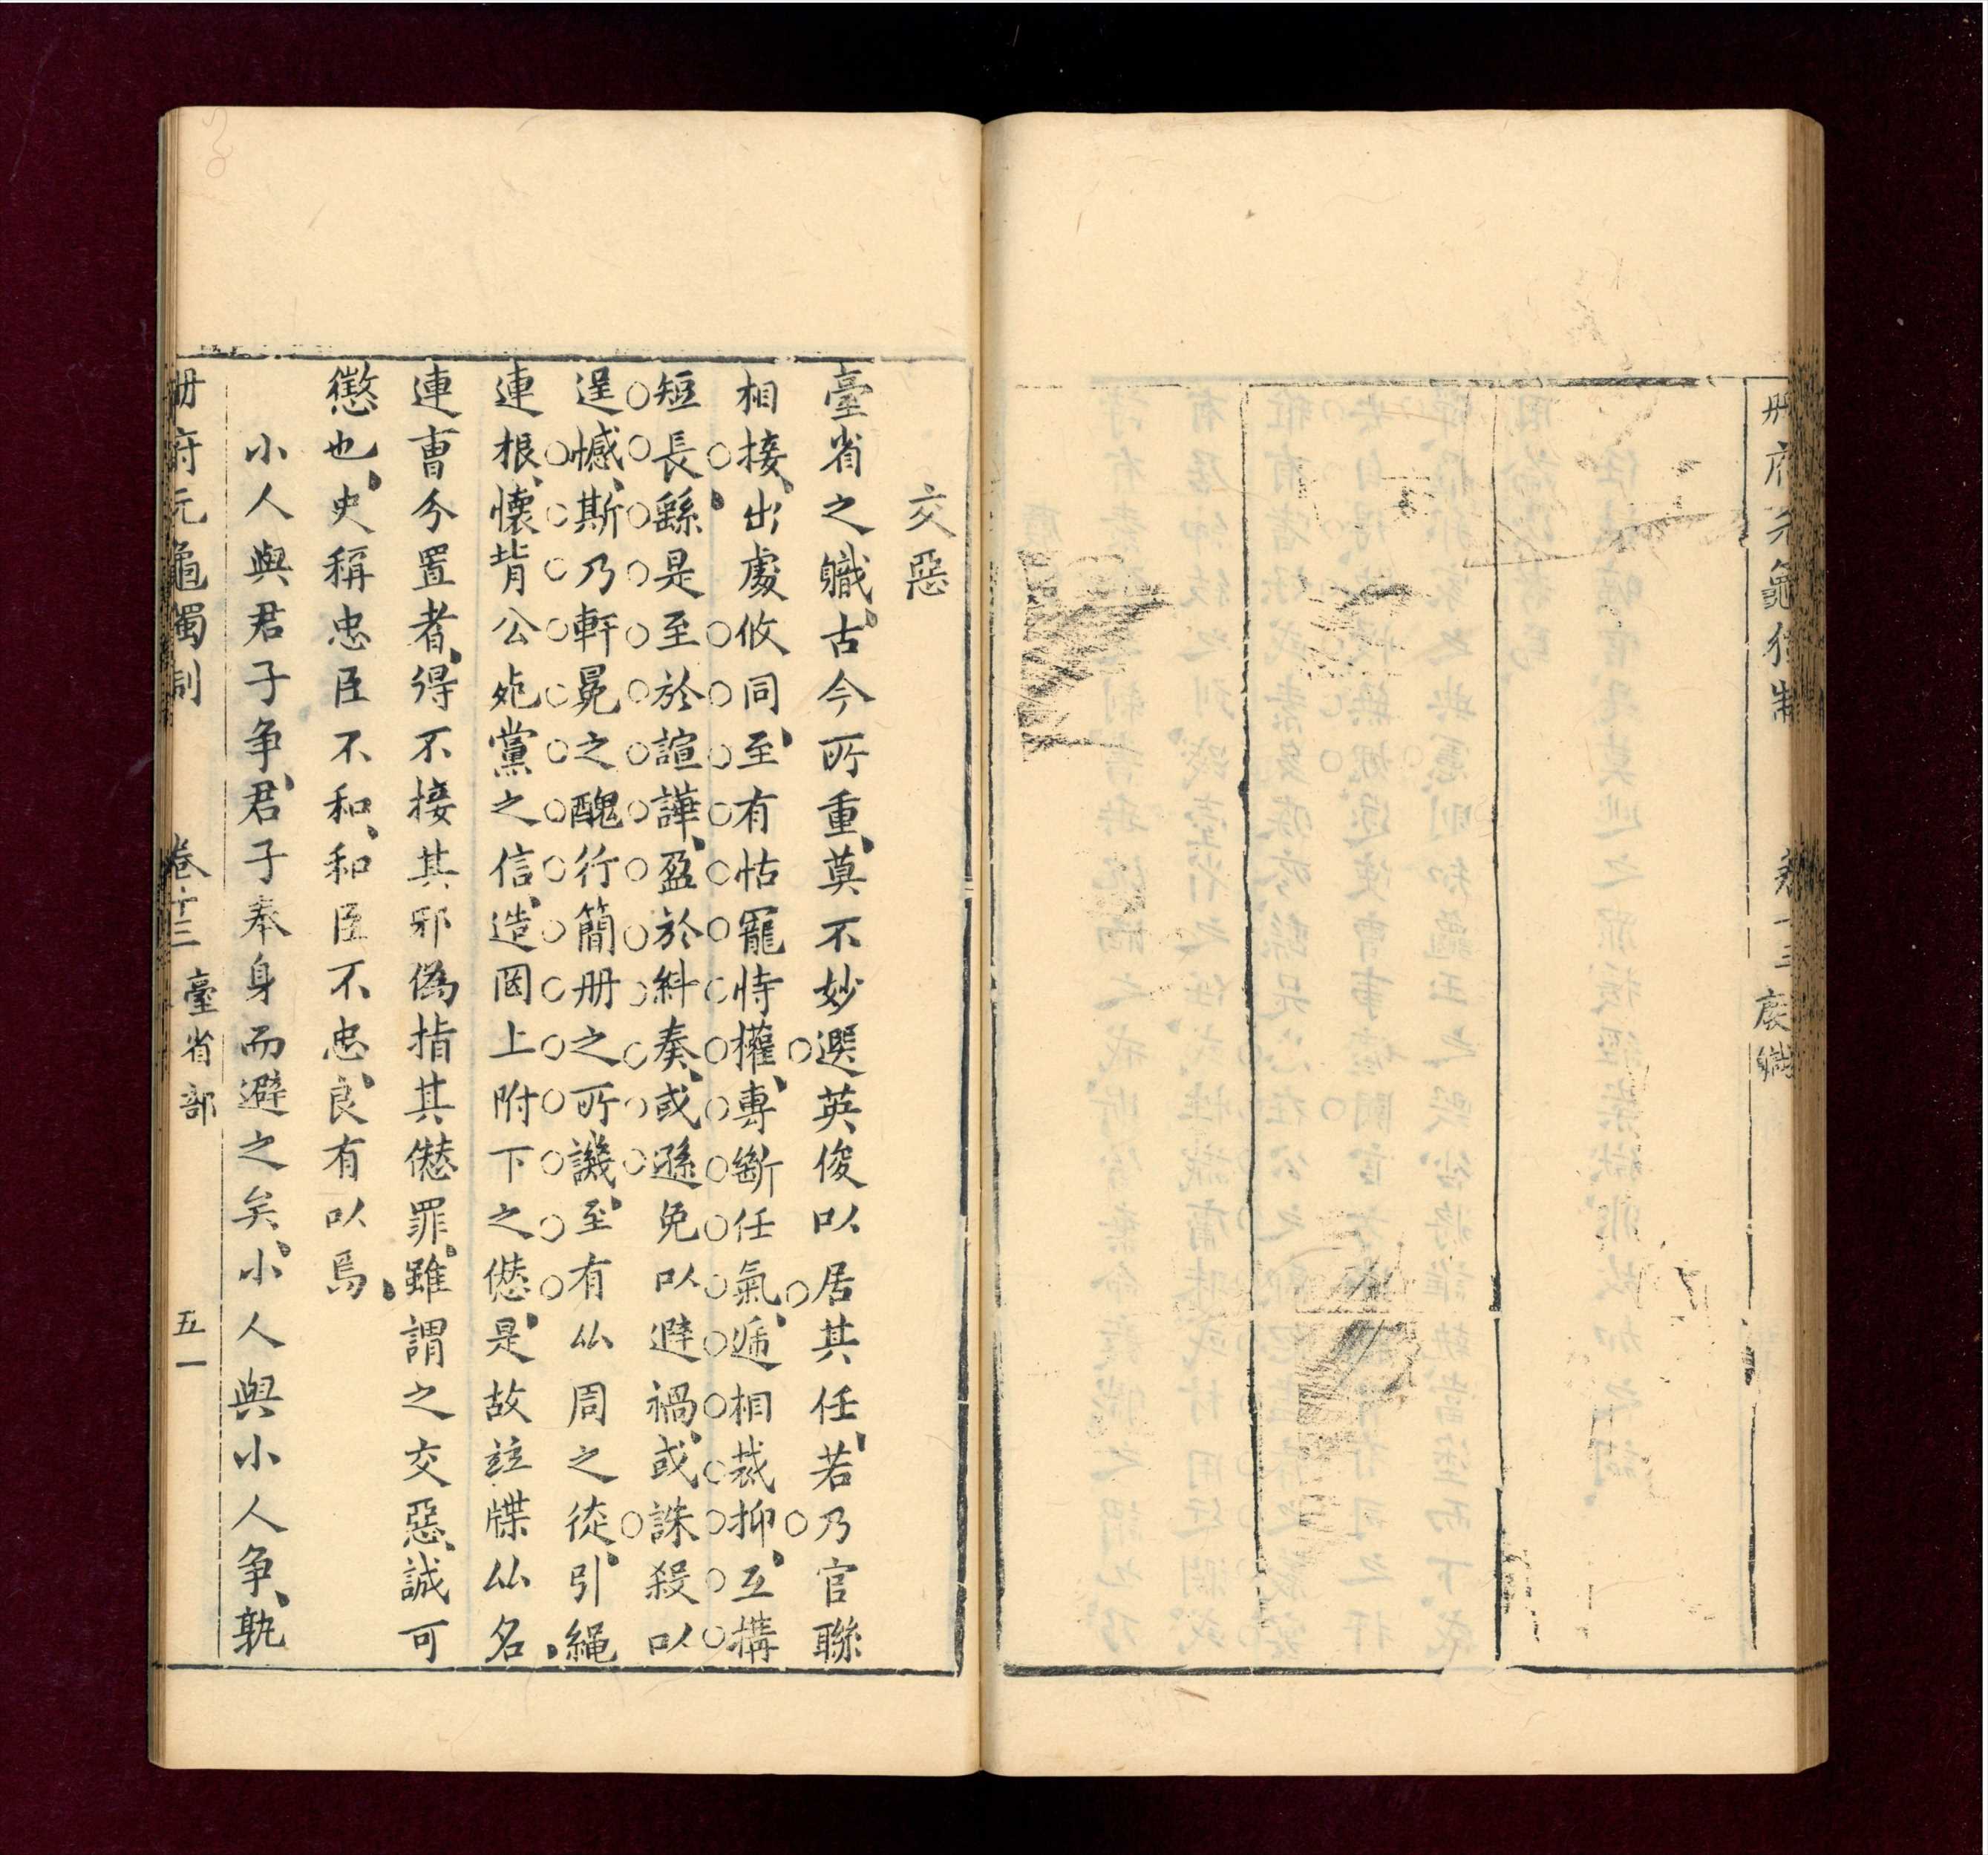 册府元龜獨制
卷十三
廢職
交惡
臺省之職古今所重莫不妙選英俊以居其任若乃官聯
相接出處攸同至有怙寵恃權專斷任氣遞相裁抑互搆
短長繇是至於諠譁盈於糾奏或遜免以避禍或誅殺以
逞憾斯乃軒冕之醜行簡册之所譏至有仏周之從引繩
連根懷背公死黨之信造罔上附下之愆是故竝牒仏名
連曹今置者得不接其邪僞指其愆罪雖謂之交惡誠可
懲也史稱忠臣不和和臣不忠良有以焉
小人與君子争君子奉身而避之矣小人與小人争孰
册府元龜獨制
卷十三
臺省部
五一